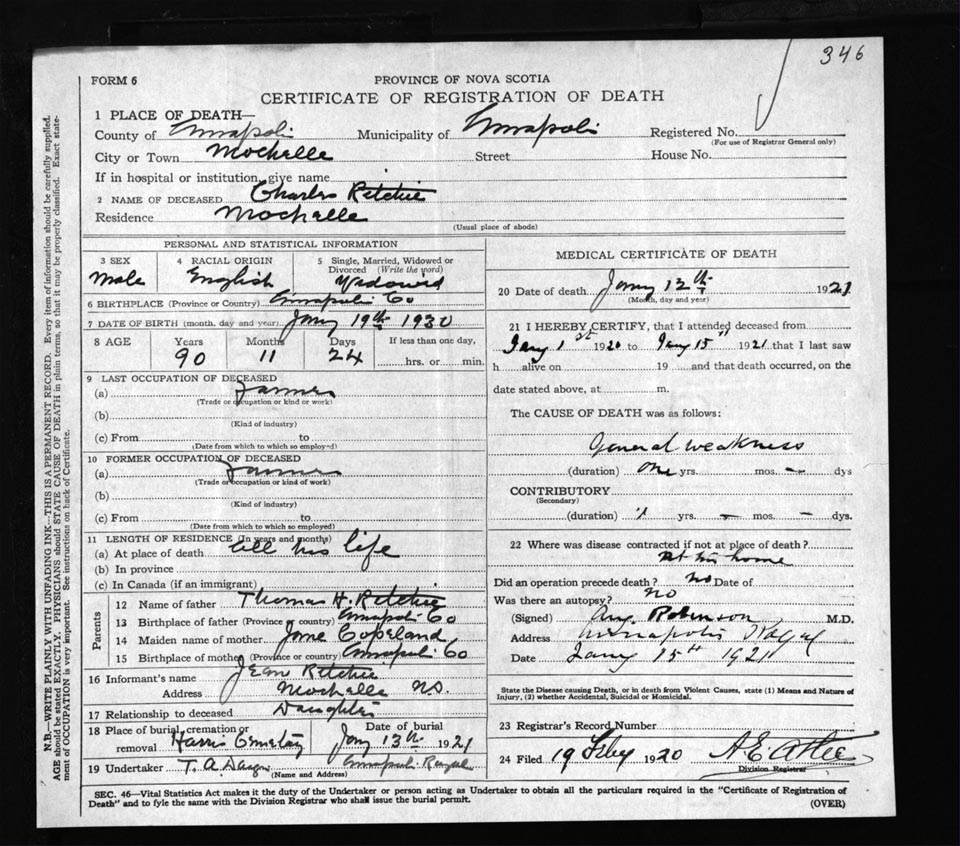 346
FORM 6
PROVINCE OF NOVA SCOTIA
CERTIFICATE OF REGISTRATION OF DEATH
1 PLACE OF DEATH—
County of Annapolis Municipality of Annapolis Registered No.
(For use of Registrar General only)
City or Town Mochelle Street House No.
If in hospital or institution, give name
2 NAME OF DECEASED Charles Ritchie
Residence Mochelle
(Usual place of abode)
PERSONAL AND STATISTICAL INFORMATION
3 SEX 4 RACIAL ORIGIN 5 Single, Married, Widowed or Divorced (Write the word)
Male English Widowed
6 BIRTHPLACE (Province or Country) Annapolis Co
7 DATE OF BIRTH (month, day and year) Jany 19th 1930
8 AGE Years Months Days If less than one day,
90 11 24 hrs. or min.
9 LAST OCCUPATION OF DECEASED
(a) Farmer
(Trade or occupation or kind or work)
(b)
(Kind of industry)
(c) From to
(Date from which to which so employed)
10 FORMER OCCUPATION OF DECEASED
(a) Farmer
(Trade or occupation or kind of work)
(b)
(Kind of industry)
(c) From to
(Date from which to which so employed)
11 LENGTH OF RESIDENCE (In years and months)
(a) At place of death all his life
(b) In province
(c) In Canada (if an immigrant)
Parents
12 Name of father Thomas H. Ritchie
13 Birthplace of father (Province or country) Annapolis Co
14 Maiden name of mother Jane Copeland
15 Birthplace of mother (Province or country) Annapolis Co
16 Informant's name Jean Ritchie
Address Mochelle N.S.
17 Relationship to deceased Daughter
18 Place of burial, cremation or removal Harris Cemetery
Date of burial Jany 13th 1921
19 Undertaker T. A. Annapolis Royal
(Name and Address)
MEDICAL CERTIFICATE OF DEATH
20 Date of death Jany 12th 1921
(Month, day and year)
21 I HEREBY CERTIFY, that I attended deceased from
Jany 1st 1920 to Jany 15th 1921 that I last saw
h alive on 19 and that death occurred, on the
date stated above, at m.
The CAUSE OF DEATH was as follows:
General weakness
(duration) one yrs. mos. — dys
CONTRIBUTORY
(Secondary)
(duration) 1 yrs. — mos. — dys.
22 Where was disease contracted if not at place of death?
At his home
Did an operation precede death? no Date of
Was there an autopsy? no
(Signed) Robinson M.D.
Address Annapolis Royal
Date Jany 15th 1921
State the Disease causing Death, or in death from Violent Causes, state (1) Means and Nature of
Injury, (2) whether Accidental, Suicidal or Homicidal.
23 Registrar's Record Number
24 Filed 19 Feby 1920 A E Atlee
Division Registrar
SEC. 46—Vital Statistics Act makes it the duty of the Undertaker or person acting as Undertaker to obtain all the particulars required in the "Certificate of Registration of
Death" and to fyle the same with the Division Registrar who shall issue the burial permit.
(OVER)
N.B.—WRITE PLAINLY WITH UNFADING INK—THIS IS A PERMANENT RECORD. Every item of information should be carefully supplied.
AGE should be stated EXACTLY. PHYSICIANS should STATE CAUSE OF DEATH in plain terms, so that it may be properly classified. Exact state-
ment of OCCUPATION is very important. See instructions on back of Certificate.